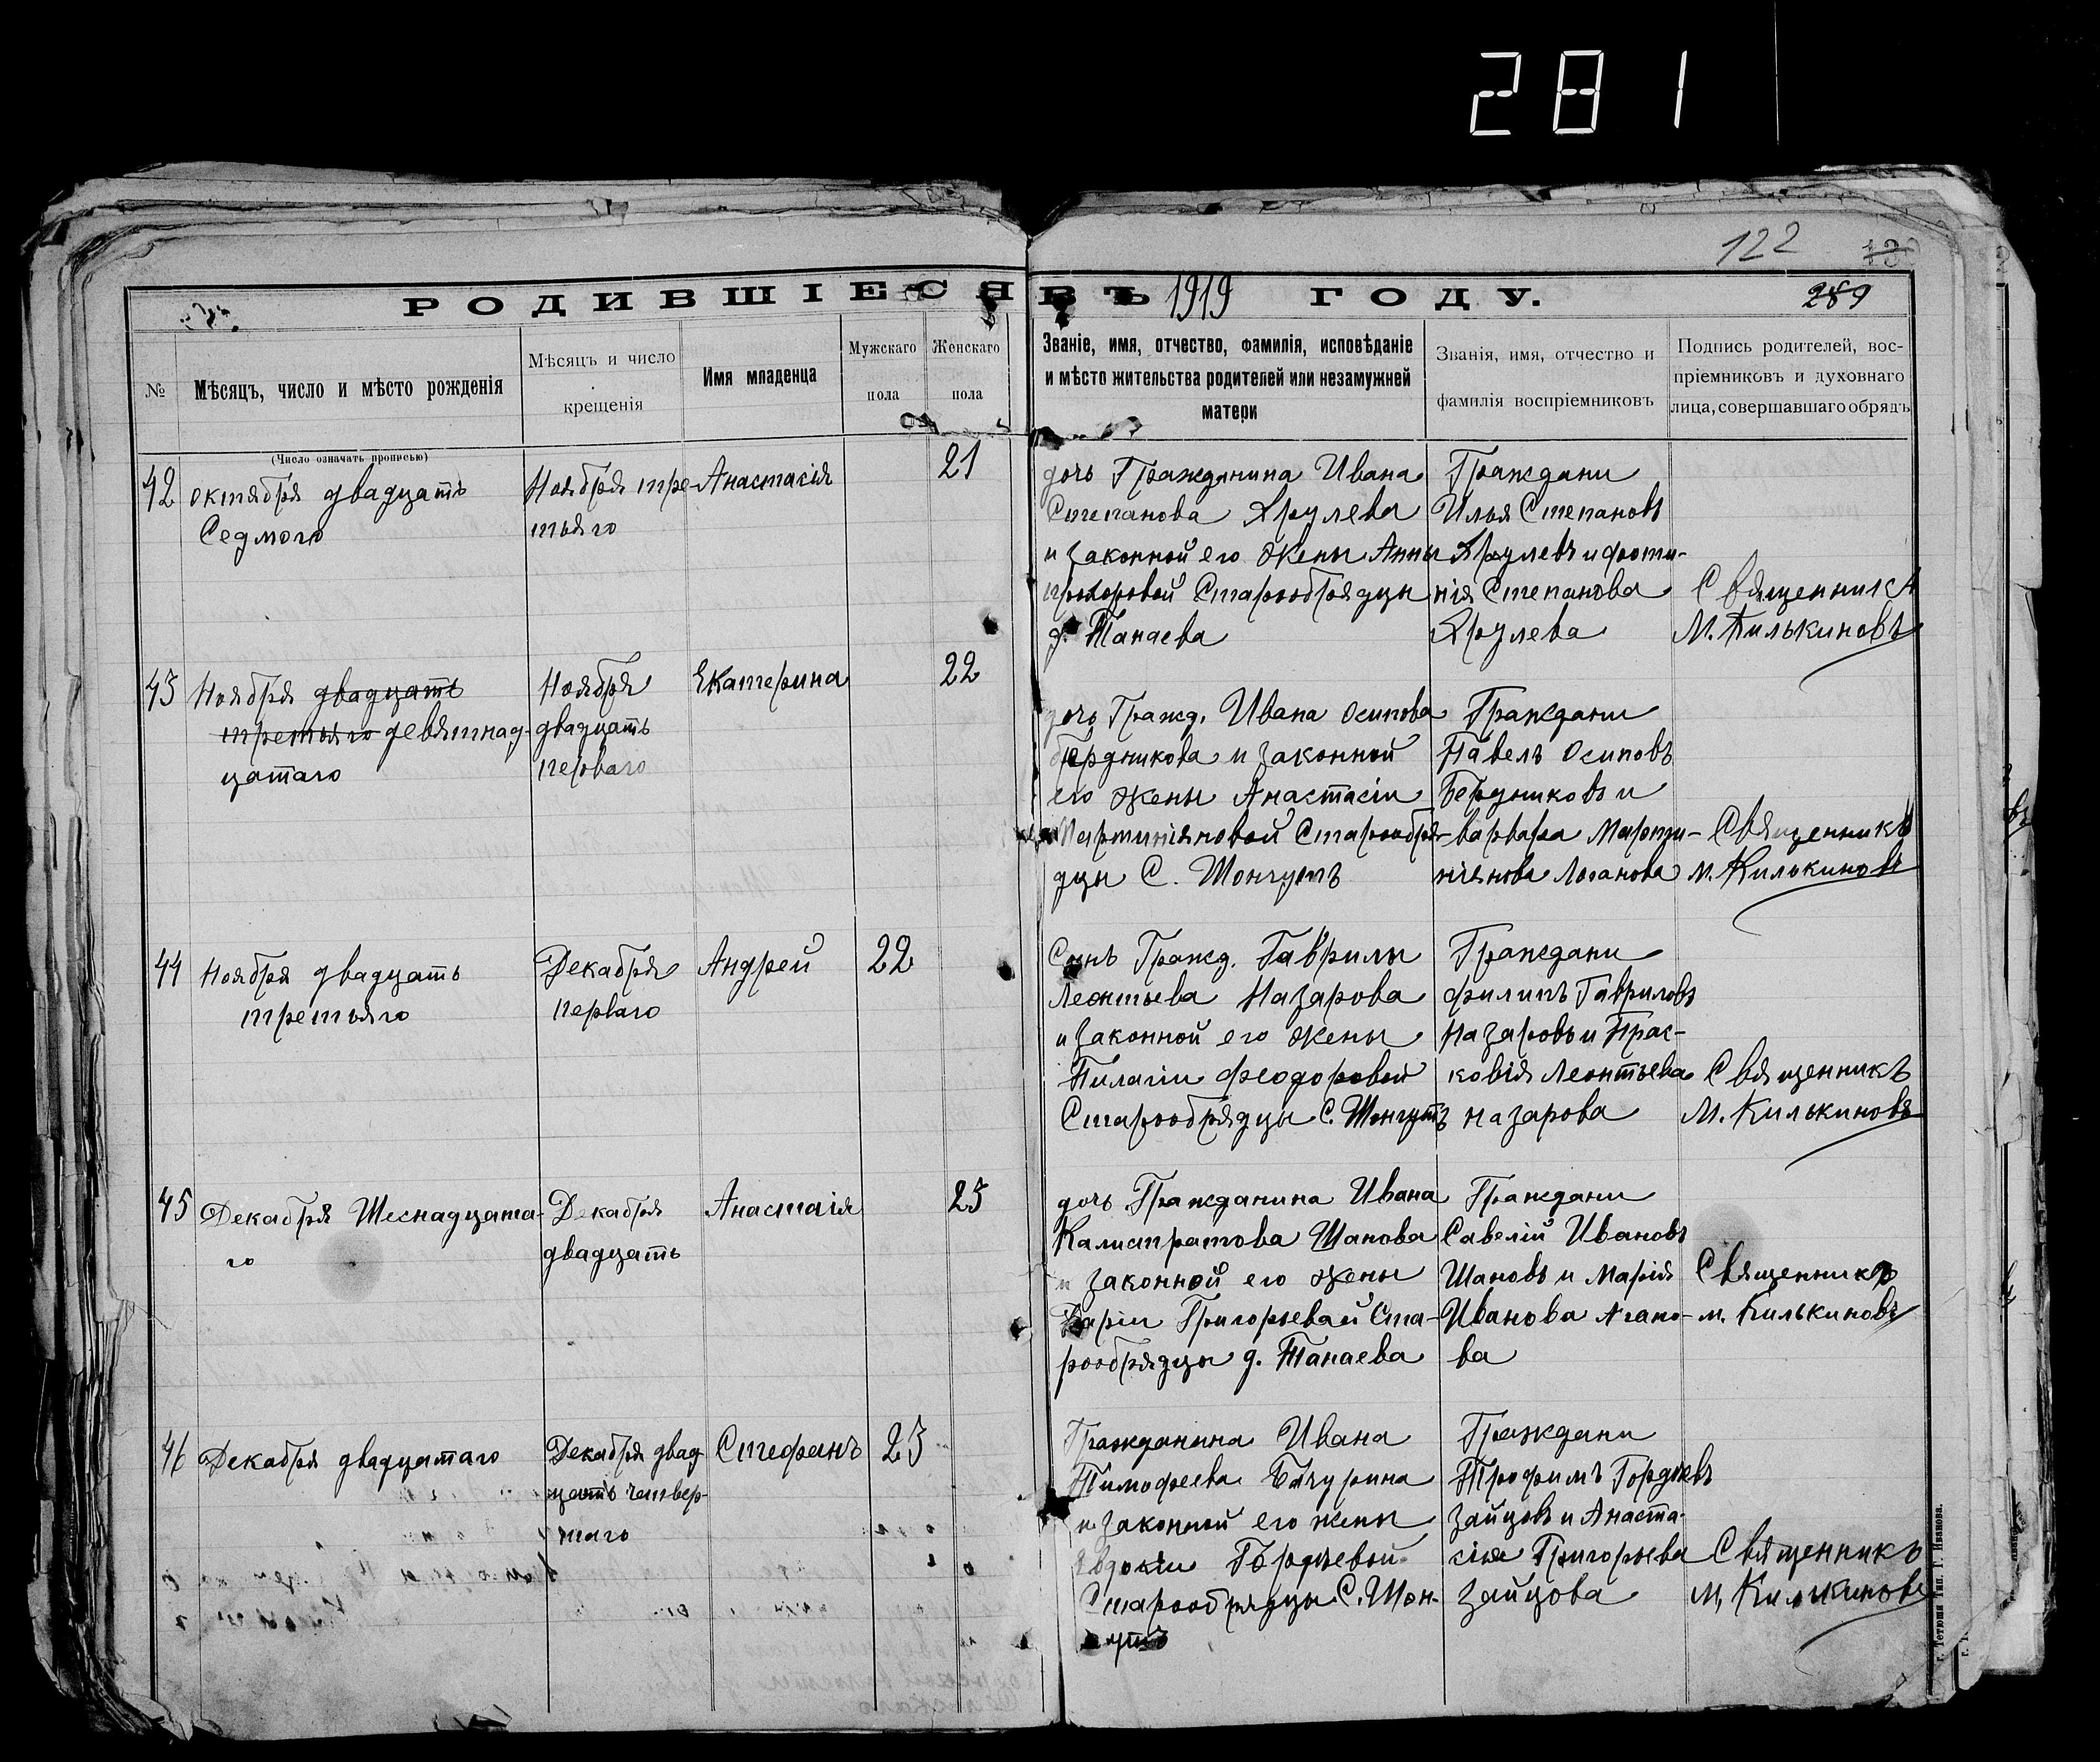 281
122
130
289
РОДИВШІЕСЯ ВЪ 1919 ГОДУ.
№
Мѣсяцъ, число и мѣсто рожденія
Мѣсяцъ и число
крещенія
Имя младенца
Мужскаго
пола
Женскаго
пола
Званіе, имя, отчество, фамилія, исповѣданіе
и мѣсто жительства родителей или незамужней
матери
Званія, имя, отчество и
фамилія воспріемниковъ
Подпись родителей, вос-
пріемниковъ и духовнаго
лица, совершавшаго обрядъ
(Число означать прописью)
42
октября двадцать
Седмого
Ноября тре-
тьяго
Анастасія
21
дочь Гражданина Ивана
Степанова Ярулева
и законной его жены Анны
прохоровой Старообрядцы
д. Танаева
Граждани
Илья Степановъ
Ярулевъ и фоти-
нія Степанова
Ярулева
Священникъ
М. Килькиновъ
43
Ноября двадцать
третьяго девятнад-
цатаго
Ноября
двадцать
перваго
Екатерина
22
дочь Гражд. Ивана Осипова
бердникова и законной
его жены Анастасіи
Мартиніяновой Старообря-
дцы С. Шонгутъ
Граждани
Павелъ Осиповъ
Бердниковъ и
варвара Марти-
нiянова Логанова
Священникъ
М. Килькиновъ
44
Ноября двадцать
третьяго
Декабря
перваго
Андрей
22
Сынъ Гражд. Гаврилы
Леонтьева Назарова
и законной его жены
Пилагіи феодоровой
Старообрядцы С. Шонгутъ
Граждани
филипъ Гавриловъ
Назаровъ и Прас-
ковія Леонтьева
назарова
Священникъ
М. Килькиновъ
45
Декабря Шеснадцата-
го
Декабря
двадцать
Анастасія
23
дочь Гражданина Ивана
Калистратова Шанова
и законной его жены
Дарьи Григорьевай Ста-
рообрядцы д. Танаева
Граждани
Савелій Ивановъ
Шановъ и Марія
Иванова Агапо-
ва
Священникъ
м. Килькиновъ
46
Декабря двадцатаго
Декабря двад
цать четвер-
таго
Стефанъ
23
Гражданина Ивана
Тимофеева Бачурина
и законной его жены
Евдокіи Гордѣевой
Старообрядцы С. Шон-
гутъ
Граждани
Трофимъ Гордѣевъ
Зайцовъ и Анаста-
сія Григорьева
Зайцова
Священникъ
М. Килькиновъ
г. Тетюши Тип. Г. Иванова.